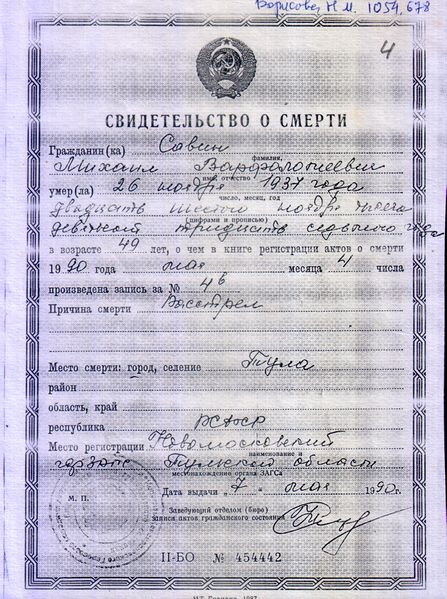 Борисова Н М. 1054,678
4
СВИДЕТЕЛЬСТВО О СМЕРТИ
Гражданин(ка) Савин
фамилия,
Михаил Варфоломеевич
имя, отчество
умер(ла) 26 ноября 1937 года
число, месяц, год
двадцать шестого ноября тысяча
(цифрами и прописью)
девятьсот тридцать седьмого года
в возрасте 49 лет, о чем в книге регистрации актов о смерти
1990 года мая месяца 4 числа
произведена запись за № 4в
Причина смерти Расстрел
Место смерти: город, селение Тула
район
область, край
республика РСФСР
Место регистрации Новомосковский
наименование и
горЗАГС Тульской области
местонахождение органа ЗАГСа
М. П.
Дата выдачи „7 “ мая 1990 г.
Заведующий отделом (бюро)
записи актов гражданского состояния
II-БО № 454442
МТ Гознака. 1987.